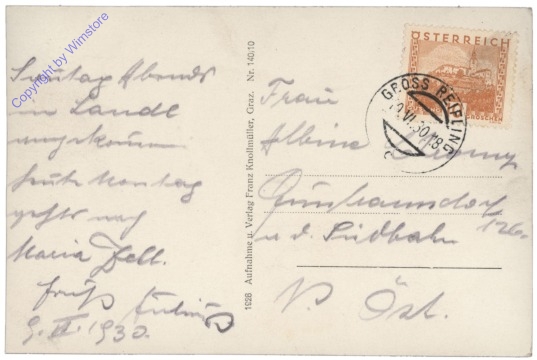 Copyright by Wimstore
Sonntag Abends
in Landl
angekommen
heute Montag
gehts nach
Maria Zell.
Gruß
9. VI. 1930.
1926 Aufnahme u. Verlag Franz Knollmüller, Graz. Nr. 140/10
ÖSTERREICH
GROSCHEN
GROSS REIFLING
VI.30.18
Frau
Albine
126
a. d. Südbahn
N. Öst.